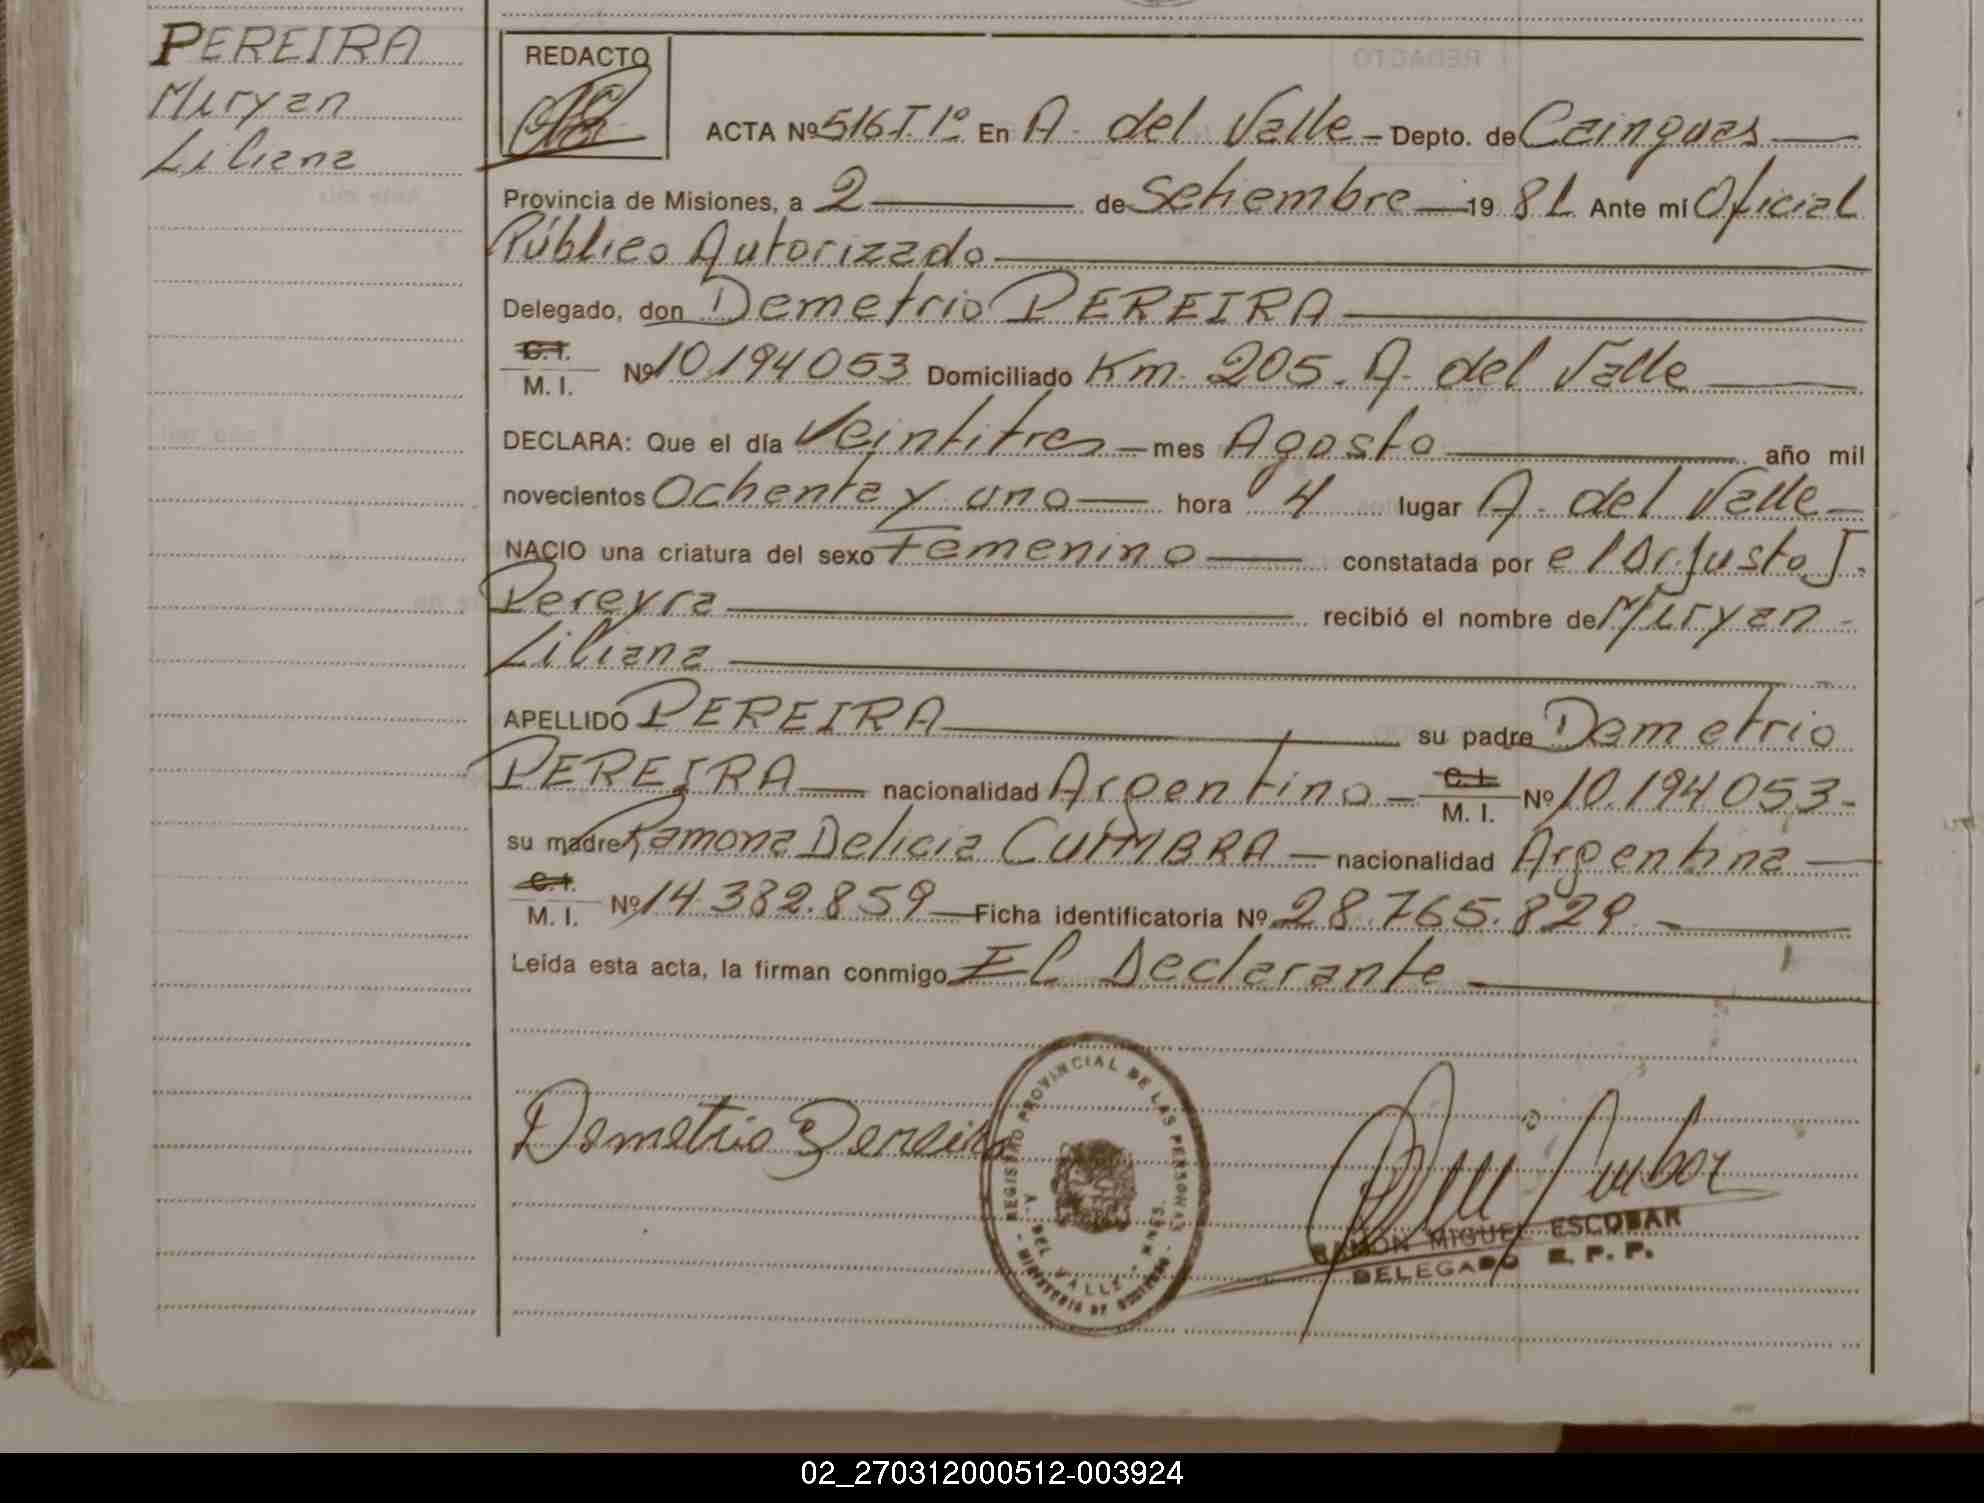 PEREIRA
Miryan
Liliana
REDACTO
ACTA Nº 516 T 1º En A. del Valle - Depto. de Cainguas
Provincia de Misiones, a 2 de Setiembre 1981 Ante mi Oficial
Público Autorizado
Delegado, don Demetrio PEREIRA
C.I.
M. I. Nº 10194053 Domiciliado Km. 205. A. del Valle
DECLARA: Que el día Veintitres - mes Agosto año mil
novecientos Ochenta y uno hora 4 lugar A. del Valle -
NACIO una criatura del sexo Femenino constatada por el Dr. Justo J.
Pereyra recibió el nombre de Miryan -
Liliana
APELLIDO PEREIRA su padre Demetrio
PEREIRA nacionalidad Argentino - C.I. M. I. Nº 10.194053-
su madre Ramona Delicia CUIMBRA - nacionalidad Argentina
C.I.
M. I. Nº 14.382.859 - Ficha identificatoria Nº 28.765.829.-
Leída esta acta, la firman conmigo El Declarante
Demetrio Pereira
REGISTRO PROVINCIAL DE LAS PERSONAS
A. DEL VALLE - MNES.
MINISTERIO DE GOBIERNO
RAMON MIGUEL ESCOBAR
DELEGADO R. P. P.
02_270312000512-003924